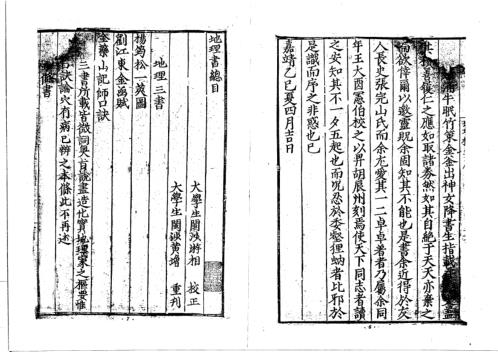 牛眠竹策金釜出神女降書生指蔵
善獲仁之應如取諸券然如其自絶于天天亦棄之
而欲倖爾以邀靈貺余固知其不能也是書余近得於灰
人長史張完山氏而余尤愛其一二卓卓著者乃屬余同
年王大酉憲伯校之以畀胡展州刻焉使天下同志者讀
之安知其不一夕五起也而況忍於委壑狸蚋者比邪於
是識而序之非惑也已
嘉靖乙巳夏四月吉日
地理書總目
大學生閩泱將相 校正
大學生閩泱黄增 重刋
地理三書
楊筠松一葉圖
劉江東金函賦
金藥山記師口訣
三書所載皆微詞奥旨説盡造化實地理家之樞要惟
口訣論穴有病已辨之本條此不再述